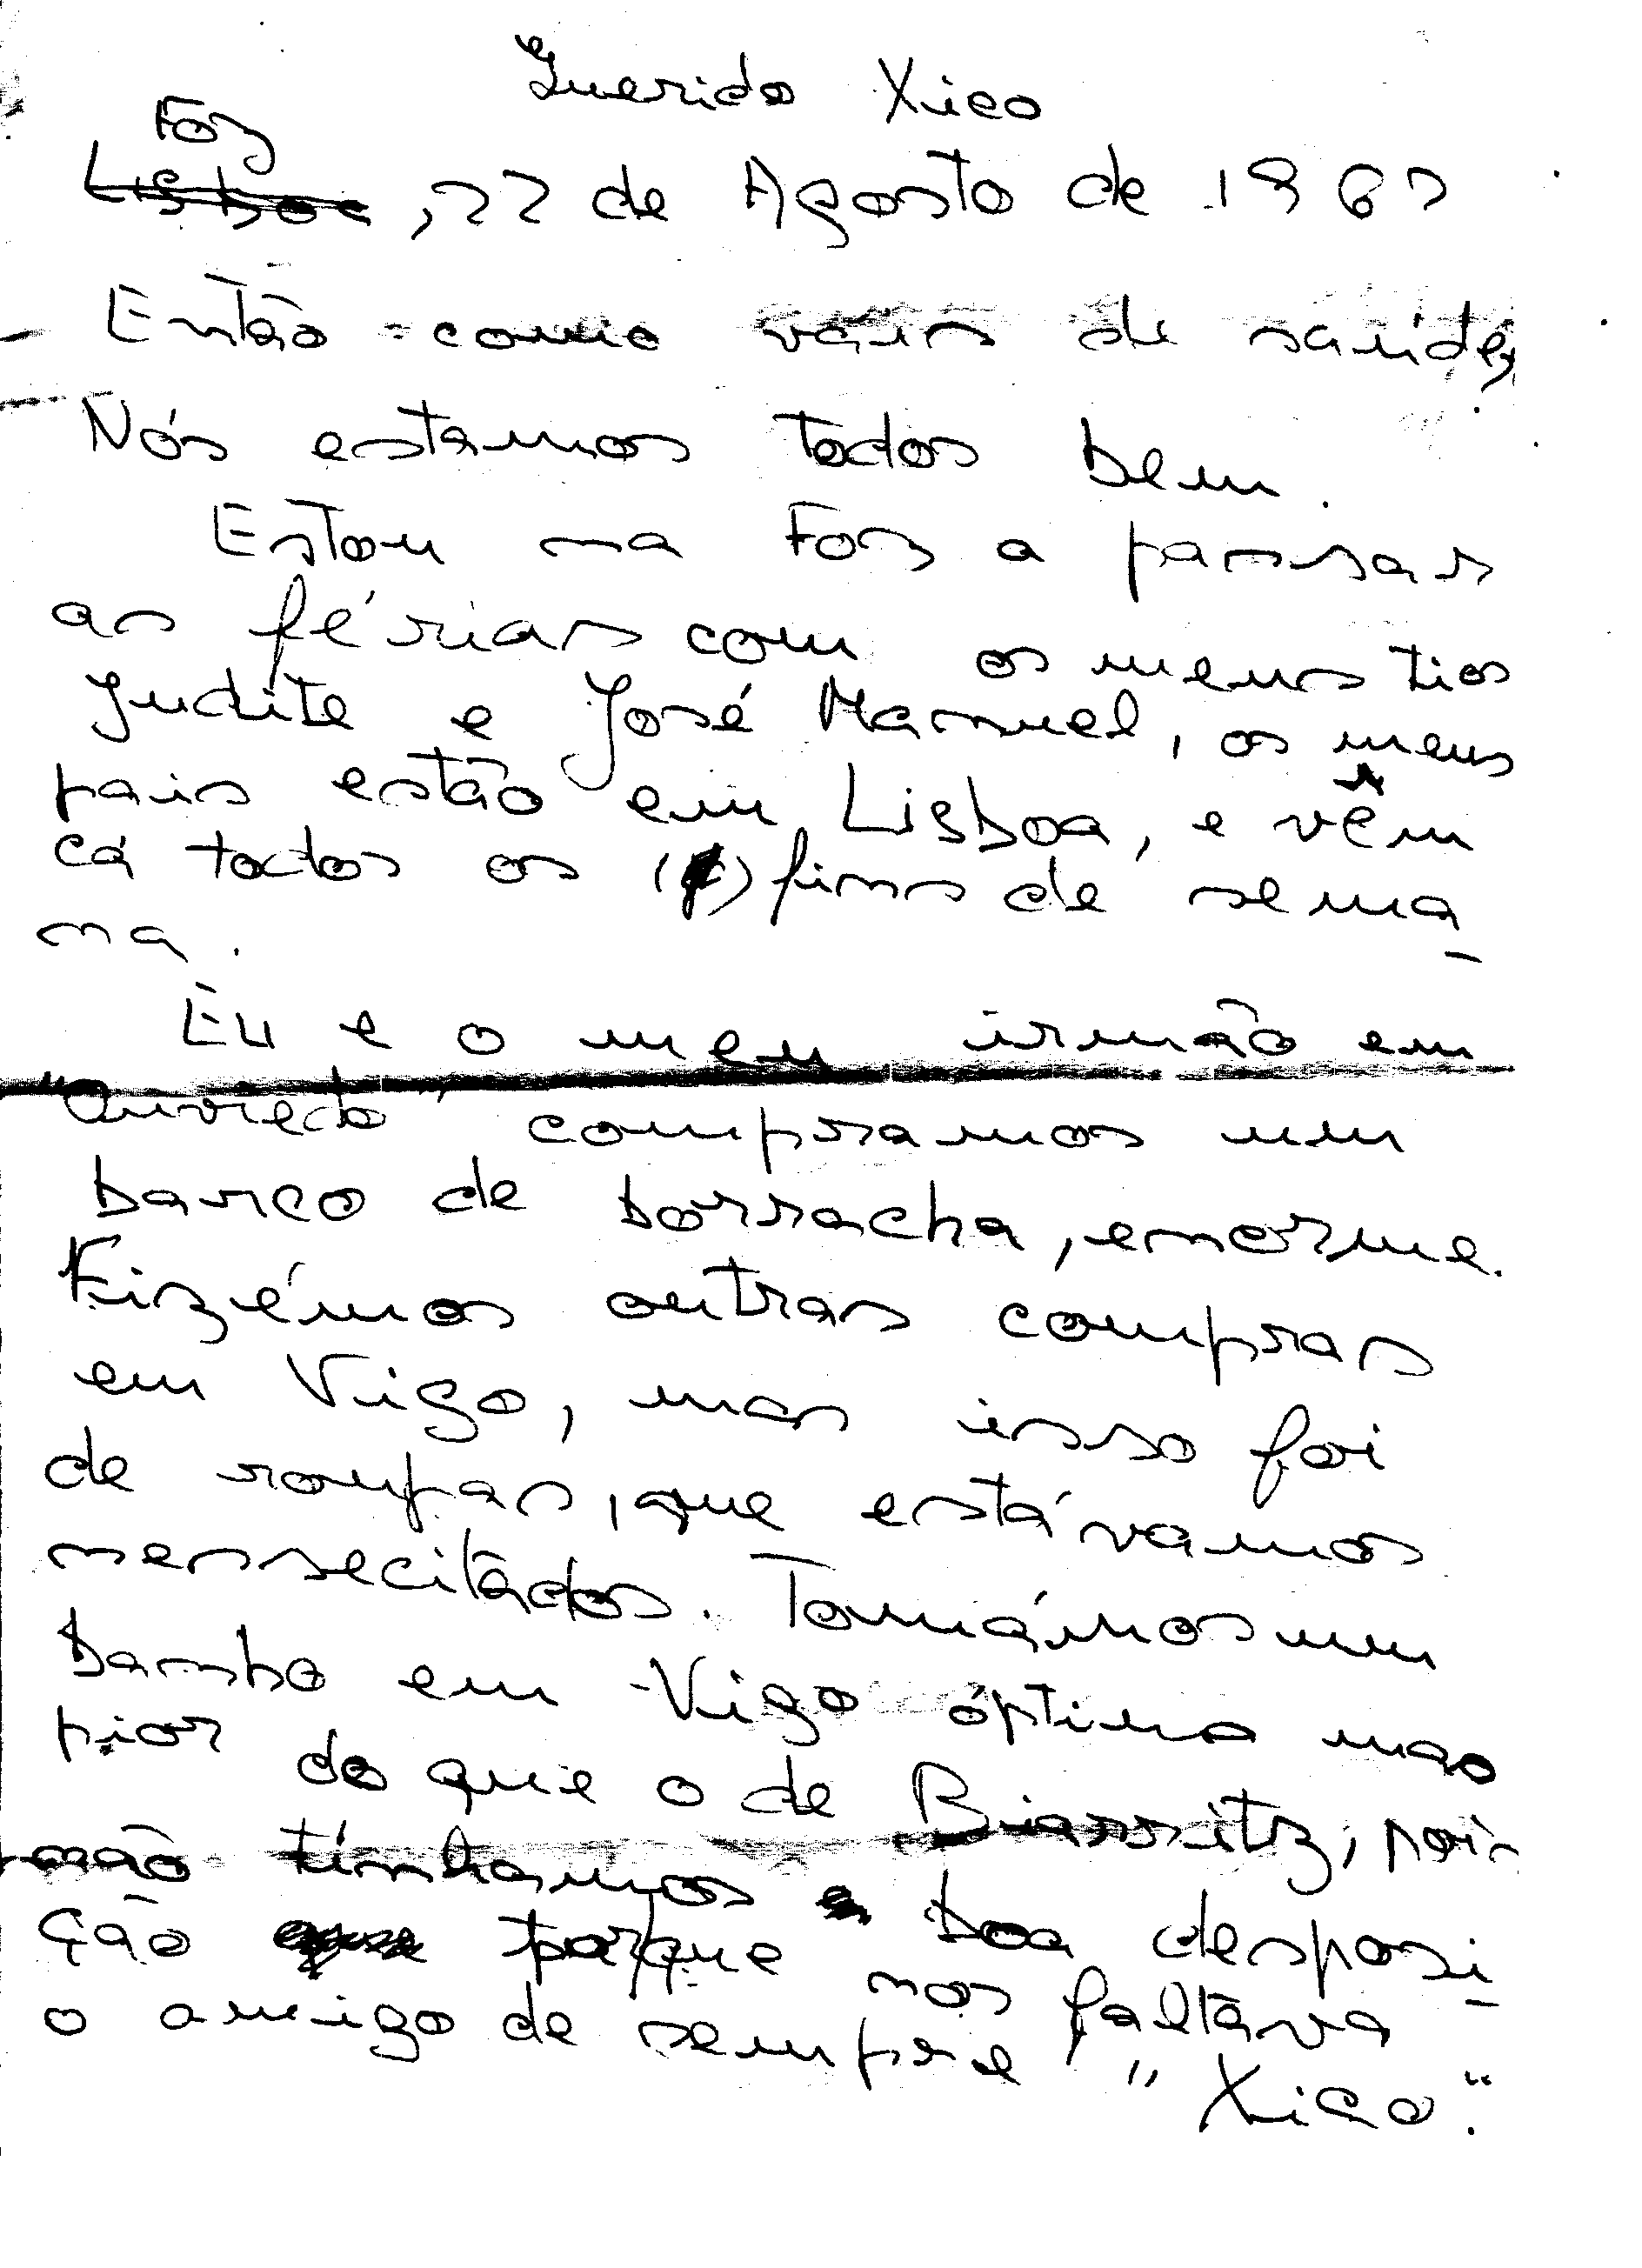 Querido Xico
Foz
Lisboa, 22 de Agosto de 1967
Então como vais de saúde,
Nós estamos todos bem.
Estou na Foz a passar
as férias com os meus tios
Judite e José Manuel, os meus
pais estão em Lisboa, e vêm
cá todos os fins de sema-
na.
Eu e o meu irmão em
compramos um
barco de borracha, enorme.
Fizémos outras compras
em Vigo, mas isso foi
de roupas, que estávamos
nenssecitados. Tomámos um
banho em Vigo óptimo mas
pior do que o de Biarritz, pois
não tínhamos boa desposi-
ção porque nos faltava
o amigo de sempre "Xico".